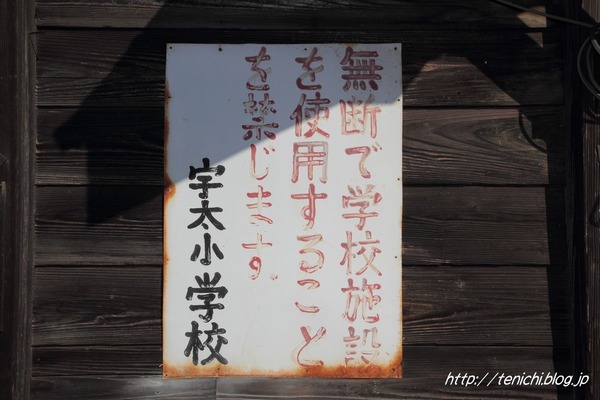 無断で学校施設
を使用すること
を禁じます。
宇太小学校
http://tenichi.blog.jp